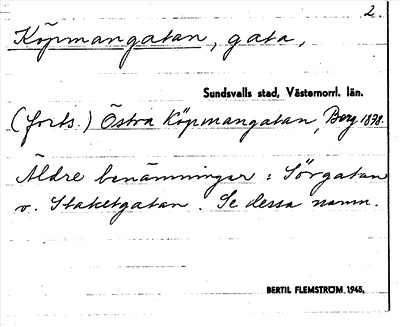 2.
Köpmangatan, gata,
Sundsvalls stad, Västernorrl. län.
(forts.) Östra Köpmangatan, Berg 1898.
Äldre benämningar: Sörgatan
o. Staketgatan. Se dessa namn.
BERTIL FLEMSTRÖM 1945.